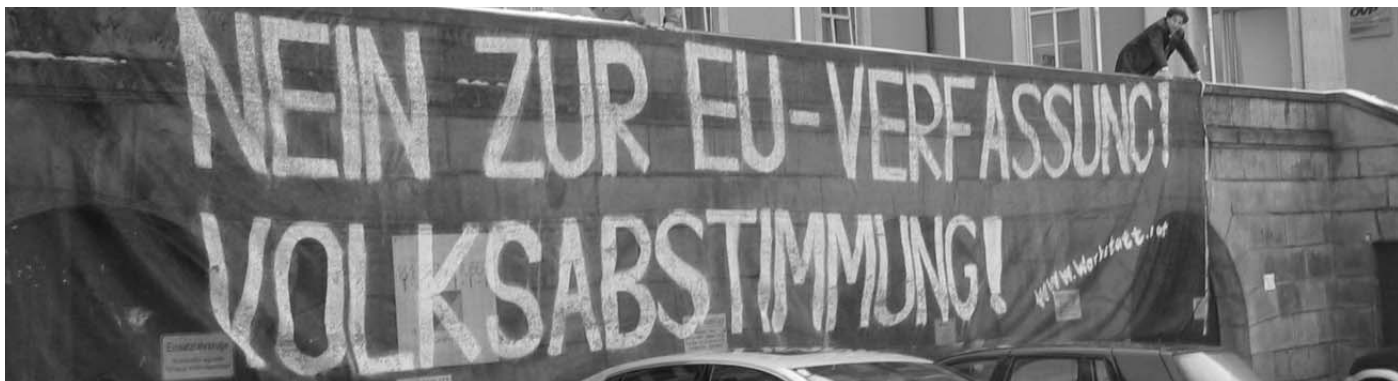 ÖVP
NEIN ZUR EU-VERFASSUNG!
VOLKSABSTIMMUNG!
www.werkstatt.or